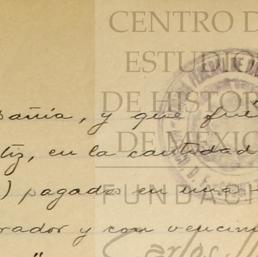 CENTRO D
ESTUDIO
DE HISTOR
DE MEXIC
FUNDACI
pañía, y que fué
tiz, en la cantidad
) pagados en una
rador y con vencim
Carlos